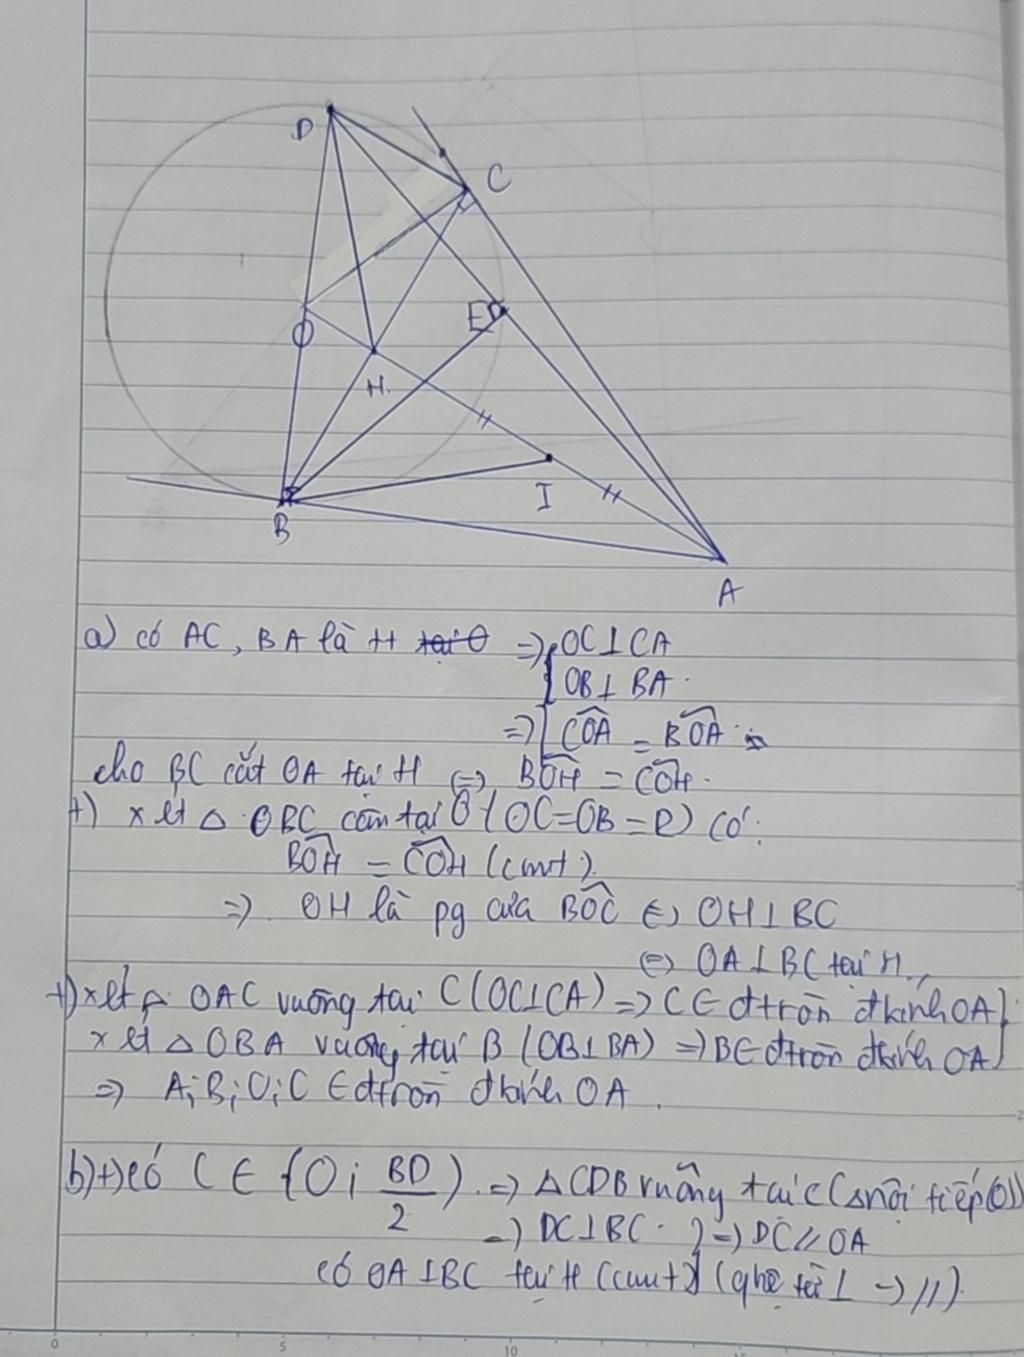 D
C
O
E
H.
I
B
A
a) có AC, BA là tt tại O => OC⊥CA
OB⊥BA.
=> CÔA = BÔA
cho BC cắt OA tại H <=> BÔH = CÔH.
+) xét △OBC cân tại O (OC=OB=R) có:
BÔH = CÔH (cmt)
=> OH là pg của BÔC <=> OH⊥BC
<=> OA⊥BC tại H
+) xét △ OAC vuông tại C (OC⊥CA) => C∈ đtròn đkính OA
xét △OBA vuông tại B (OB⊥BA) => B∈ đtròn đkính OA
=> A;B;O;C ∈ đtròn đkính OA.
b)+) có C ∈ (O; BD/2) => △CDB vuông tại C (△nội tiếp(O))
=> DC⊥BC. => DC//OA
có OA⊥BC tại H (cmt) (qhệ từ ⊥ -> //)
0 5 10